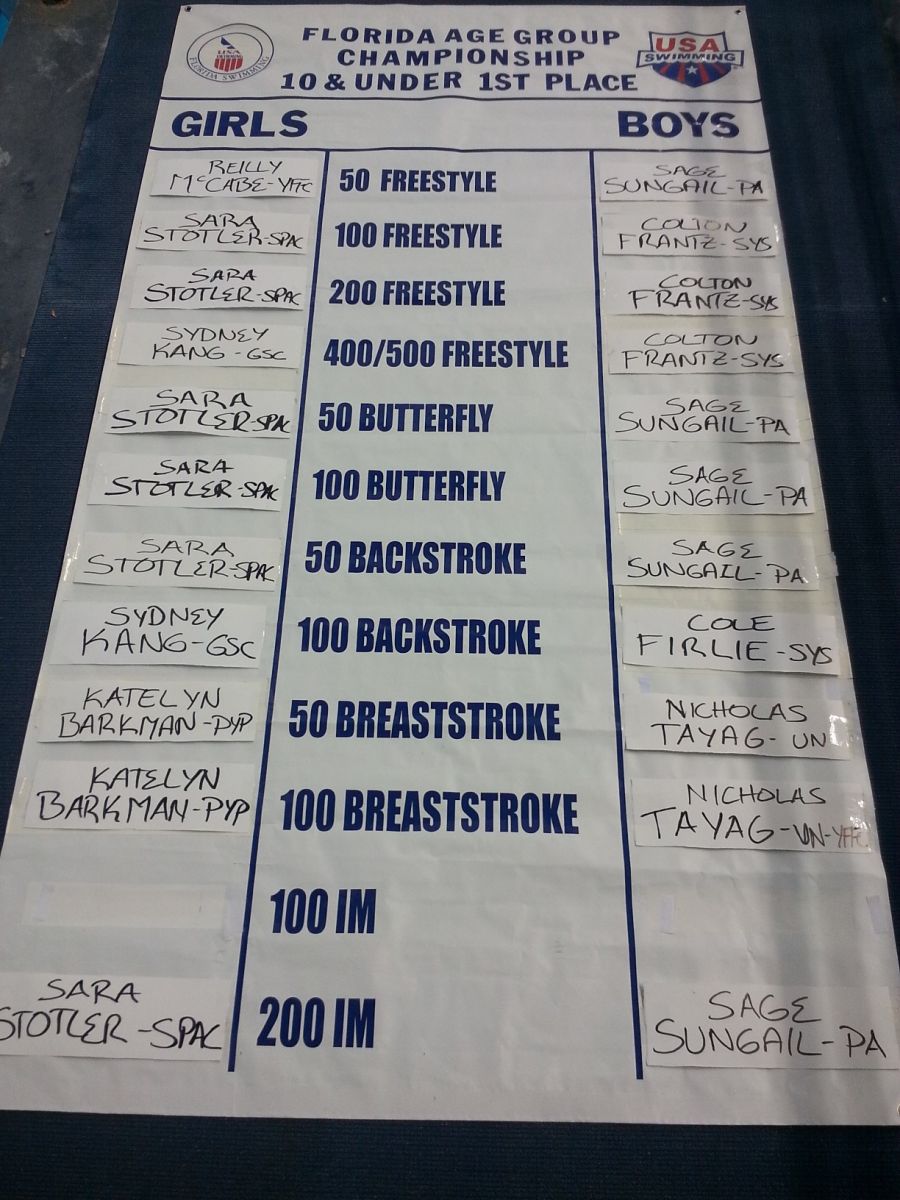 FLORIDA AGE GROUP
CHAMPIONSHIP
10 & UNDER 1ST PLACE
USA
SWIMMING
FLORIDA SWIMMING
USA
SWIMMING
GIRLS
BOYS
REILLY
McCABE-YFFC
50 FREESTYLE
SAGE
SUNGAIL-PA
SARA
STOTLER-SPAC
100 FREESTYLE
COLTON
FRANTZ-SYS
SARA
STOTLER-SPAC
200 FREESTYLE
COLTON
FRANTZ-SYS
SYDNEY
KANG-GSC
400/500 FREESTYLE
COLTON
FRANTZ-SYS
SARA
STOTLER-SPAC
50 BUTTERFLY
SAGE
SUNGAIL-PA
SARA
STOTLER-SPAC
100 BUTTERFLY
SAGE
SUNGAIL-PA
SARA
STOTLER-SPAC
50 BACKSTROKE
SAGE
SUNGAIL-PA
SYDNEY
KANG-GSC
100 BACKSTROKE
COLE
FIRLIE-SYS
KATELYN
BARKMAN-PYP
50 BREASTSTROKE
NICHOLAS
TAYAG-UN
KATELYN
BARKMAN-PYP
100 BREASTSTROKE
NICHOLAS
TAYAG-UN-YFFC
100 IM
SARA
STOTLER-SPAC
200 IM
SAGE
SUNGAIL-PA